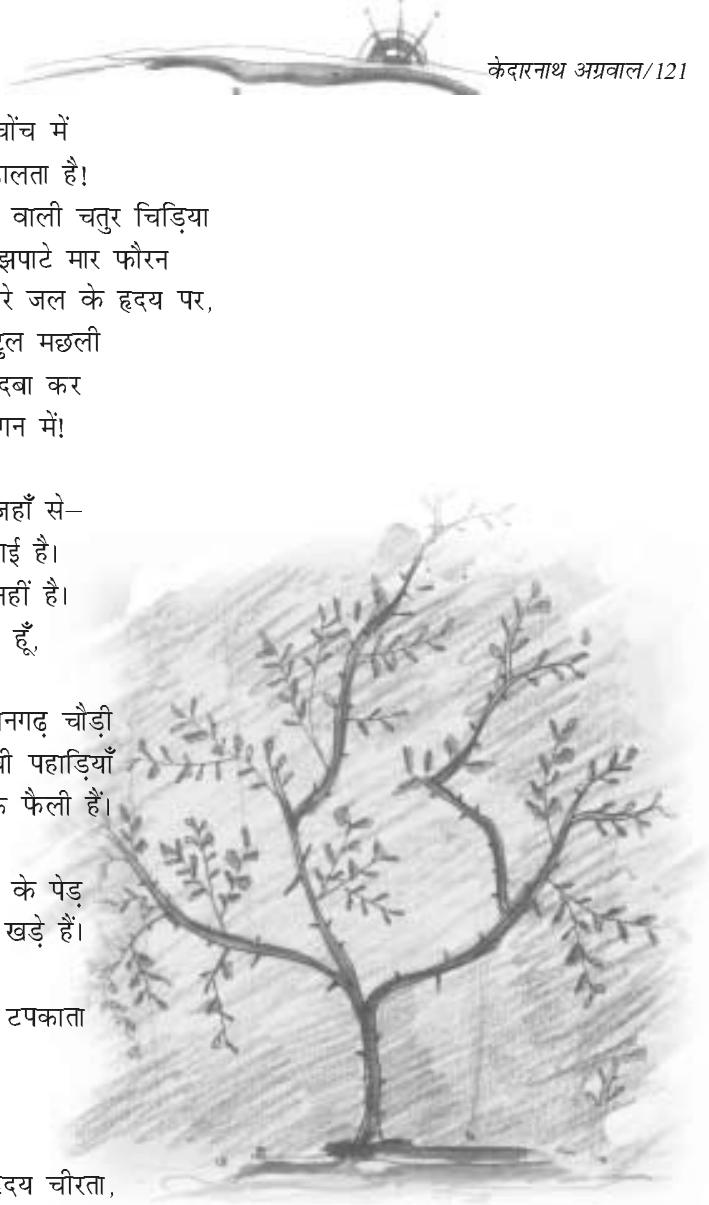 केदारनाथ अग्रवाल/121
चोंच में
डालता है!
वाली चतुर चिड़िया
झपाटे मार फौरन
रे जल के हृदय पर,
टुल मछली
दबा कर
गन में!
जहाँ से–
गई है।
नहीं है।
हूँ,
नगढ़ चौड़ी
ची पहाड़ियाँ
क फैली हैं।
के पेड़
खड़े हैं।
टपकाता
हृदय चीरता,